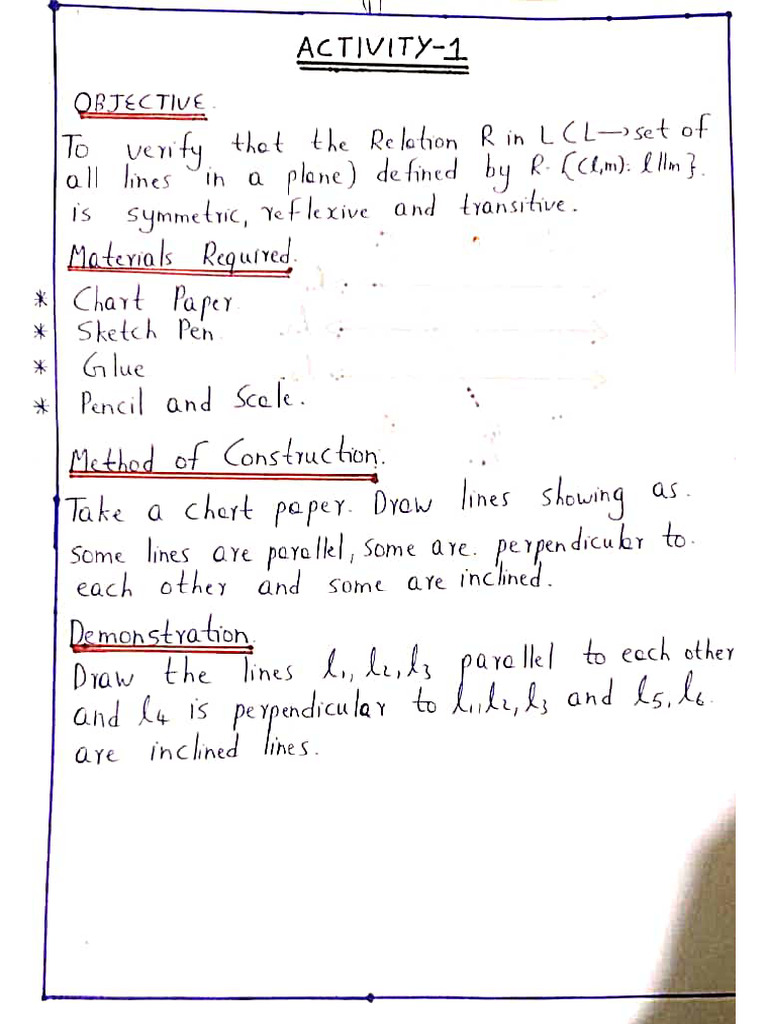 ACTIVITY-1
OBJECTIVE.
To verify that the Relation R in L (L→set of
all lines in a plane) defined by R. {(l,m): l||m}.
is symmetric, reflexive and transitive.
Materials Required.
* Chart Paper
* Sketch Pen
* Glue
* Pencil and Scale.
Method of Construction.
Take a chart paper. Draw lines showing as.
some lines are parallel, some are. perpendicular to.
each other and some are inclined.
Demonstration.
Draw the lines l1, l2, l3 parallel to each other
and l4 is perpendicular to l1, l2, l3 and l5, l6.
are inclined lines.